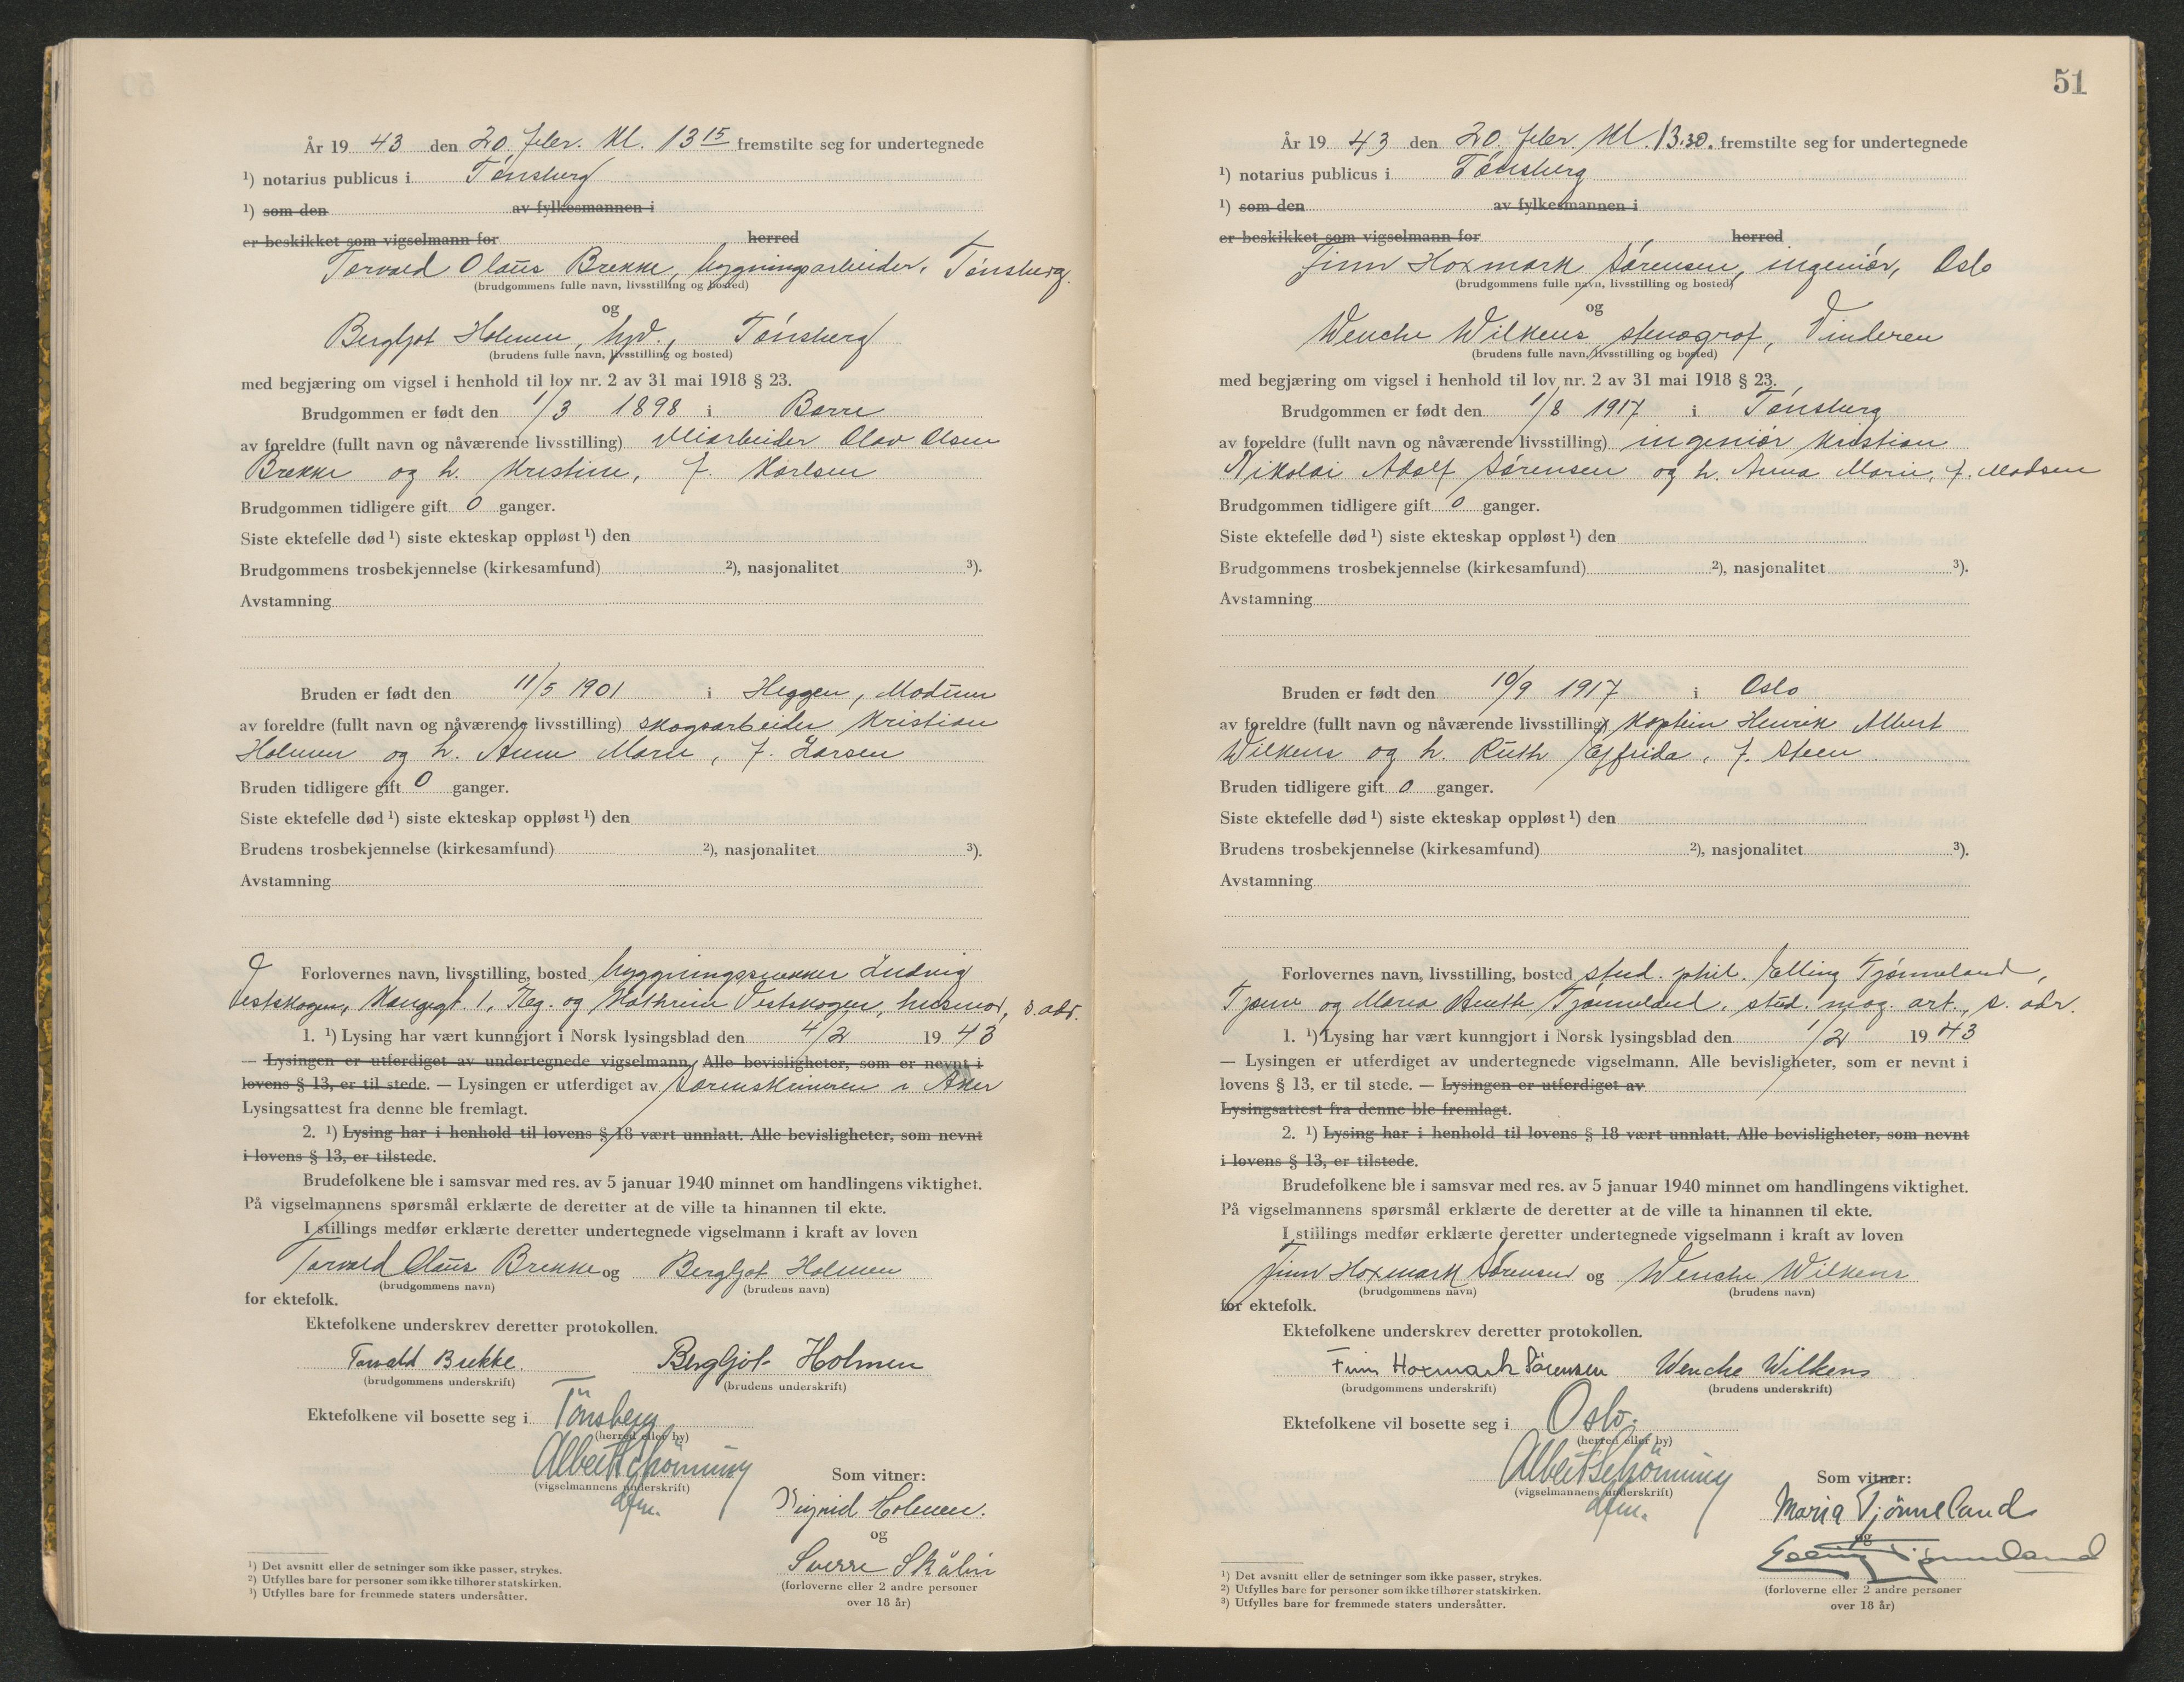 År 19 43 den 20. febr. Kl. 13 15 fremstilte seg for undertegnede
¹) notarius publicus i Tönsberg
¹) som den av fylkesmannen i
er beskikket som vigselmann for herred
Torvald Olaüs Brekke, bygningsarbeider, Tønsberg.
(brudgommens fulle navn, livsstilling og bosted)
og
Bergljot Holmen, hyd., Tönsberg
(brudens fulle navn, livsstilling og bosted)
med begjæring om vigsel i henhold til lov nr. 2 av 31 mai 1918 § 23.
Brudgommen er født den 1/3 1898 i Borre
av foreldre (fullt navn og nåværende livsstilling) veiarbeider Olav Olsen
Brekke og h. Kristine, f. Karlsen
Brudgommen tidligere gift 0 ganger.
Siste ektefelle død ¹) siste ekteskap oppløst ¹) den
Brudgommens trosbekjennelse (kirkesamfund) ²), nasjonalitet ³).
Avstamning
Bruden er født den 11/5 1901 i Heggen, Modüm
av foreldre (fullt navn og nåværende livsstilling) skogsarbeider Kristian
Holmen og h. Anne Marie, f. Larsen
Bruden tidligere gift 0 ganger.
Siste ektefelle død ¹) siste ekteskap oppløst ¹) den
Brudens trosbekjennelse (kirkesamfund) ²), nasjonalitet ³).
Avstamning
Forlovernes navn, livsstilling, bosted byggningssnekker Ludvig
Vestskogen, 1, Tbg. og Kathrine Vestskogen, husmor, s. adr.
1. ¹) Lysing har vært kunngjort i Norsk lysingsblad den 4/2 19 43
— Lysingen er utferdiget av undertegnede vigselmann. Alle bevisligheter, som er nevnt i
lovens § 13, er til stede. — Lysingen er utferdiget av Sorenskriveren i Aker
Lysingsattest fra denne ble fremlagt.
2. ¹) Lysing har i henhold til lovens § 18 vært unnlatt. Alle bevisligheter, som nevnt
i lovens § 13, er tilstede.
Brudefolkene ble i samsvar med res. av 5 januar 1940 minnet om handlingens viktighet.
På vigselmannens spørsmål erklærte de deretter at de ville ta hinannen til ekte.
I stillings medfør erklærte deretter undertegnede vigselmann i kraft av loven
Torvald Olaüs Brekke og Bergljot Holmen
(brudgommens navn) (brudens navn)
for ektefolk.
Ektefolkene underskrev deretter protokollen.
Torvald Brekke. Bergljot Holmen
(brudgommens underskrift) (brudens underskrift)
Ektefolkene vil bosette seg i Tönsberg
(herred eller by)
Albert Schönning
(vigselmannens underskrift)
dfm.
Som vitner:
Sigrid Holmen.
og
Sverre Skålin
(forloverne eller 2 andre personer
over 18 år)
¹) Det avsnitt eller de setninger som ikke passer, strykes.
²) Utfylles bare for personer som ikke tilhører statskirken.
³) Utfylles bare for fremmede staters undersåtter.
51
År 19 43 den 20. febr. Kl. 13.30. fremstilte seg for undertegnede
¹) notarius publicus i Tönsberg
¹) som den av fylkesmannen i
er beskikket som vigselmann for herred
Finn Hoxmark Sørensen, ingeniør, Oslo
(brudgommens fulle navn, livsstilling og bosted)
og
Wenche Wilkens, stenograf, Vinderen
(brudens fulle navn, livsstilling og bosted)
med begjæring om vigsel i henhold til lov nr. 2 av 31 mai 1918 § 23.
Brudgommen er født den 1/8 1917 i Tönsberg
av foreldre (fullt navn og nåværende livsstilling) ingeniør Kristian
Nikolai Adolf Sørensen og h. Anna Marie, f. Madsen
Brudgommen tidligere gift 0 ganger.
Siste ektefelle død ¹) siste ekteskap oppløst ¹) den
Brudgommens trosbekjennelse (kirkesamfund) ²), nasjonalitet ³).
Avstamning
Bruden er født den 10/9 1917 i Oslo
av foreldre (fullt navn og nåværende livsstilling) Kaptein Henrik Albert
Wilkens og h. Rüth Effrida, f. Steen
Bruden tidligere gift 0 ganger.
Siste ektefelle død ¹) siste ekteskap oppløst ¹) den
Brudens trosbekjennelse (kirkesamfund) ²), nasjonalitet ³).
Avstamning
Forlovernes navn, livsstilling, bosted stud. phil. Elling Tjønneland,
Tjøme og Maria Tjønneland, stud. mag. art., s. adr.
1. ¹) Lysing har vært kunngjort i Norsk lysingsblad den 1/2 19 43
— Lysingen er utferdiget av undertegnede vigselmann. Alle bevisligheter, som er nevnt i
lovens § 13, er til stede. — Lysingen er utferdiget av
Lysingsattest fra denne ble fremlagt.
2. ¹) Lysing har i henhold til lovens § 18 vært unnlatt. Alle bevisligheter, som nevnt
i lovens § 13, er tilstede.
Brudefolkene ble i samsvar med res. av 5 januar 1940 minnet om handlingens viktighet.
På vigselmannens spørsmål erklærte de deretter at de ville ta hinannen til ekte.
I stillings medfør erklærte deretter undertegnede vigselmann i kraft av loven
Finn Hoxmark Sørensen og Wenche Wilkens
(brudgommens navn) (brudens navn)
for ektefolk.
Ektefolkene underskrev deretter protokollen.
Finn Hoxmark Sörensen Wenche Wilkens
(brudgommens underskrift) (brudens underskrift)
Ektefolkene vil bosette seg i Oslo.
(herred eller by)
Albert Schönning
(vigselmannens underskrift)
dfm.
Som vitner:
Maria Tjönneland
og
Elling Tjønneland
(forloverne eller 2 andre personer
over 18 år)
¹) Det avsnitt eller de setninger som ikke passer, strykes.
²) Utfylles bare for personer som ikke tilhører statskirken.
³) Utfylles bare for fremmede staters undersåtter.